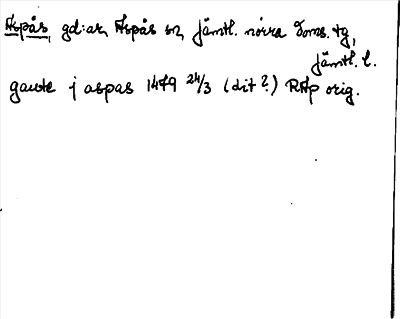 Aspås, gd:ar, Aspås sn, Jämtl. norra doms. tg,
Jämtl. l.
gaute j aspas 1479 24/3 (dit?) RAp orig.